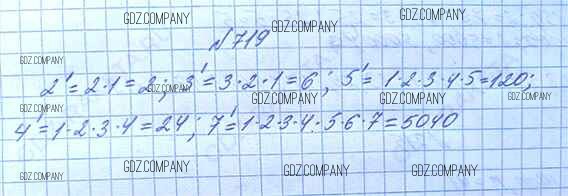 GDZ.COMPANY
GDZ.COMPANY
№719
GDZ.COMPANY
GDZ.COMPANY
2! = 2·1 = 2; 3! = 3·2·1 = 6; 5! = 1·2·3·4·5 = 120;
GDZ.COMPANY
GDZ.COMPANY
GDZ.COMPANY
GDZ.COMPANY
GDZ.COMPANY
4! = 1·2·3·4 = 24; 7! = 1·2·3·4·5·6·7 = 5040
GDZ.COMPANY
GDZ.COMPANY
GDZ.COMPANY
GDZ.COMPANY